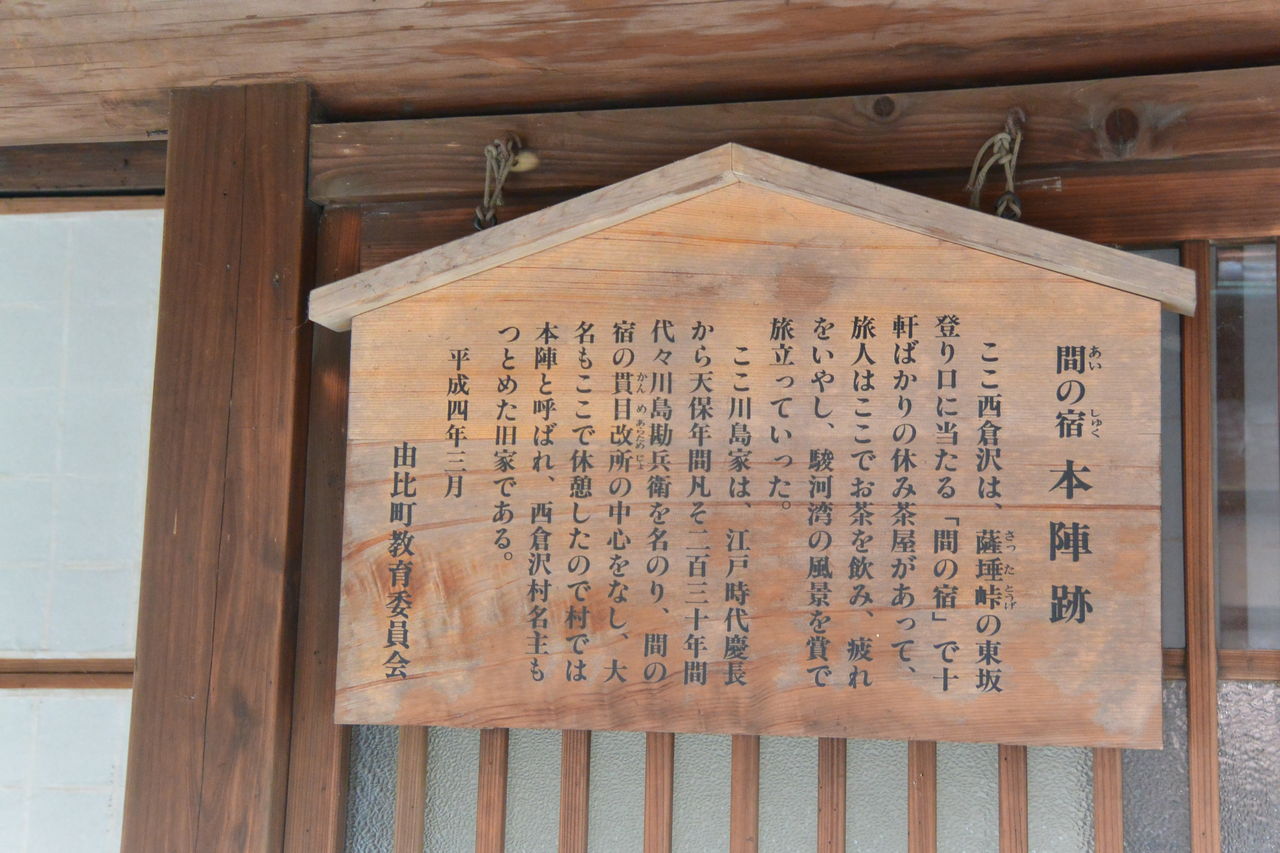 間の宿 本陣跡
ここ西倉沢は、薩埵峠の東坂
登り口に当たる「間の宿」で十
軒ばかりの休み茶屋があって、
旅人はここでお茶を飲み、疲れ
をいやし、駿河湾の風景を賞で
旅立っていった。
ここ川島家は、江戸時代慶長
から天保年間凡そ二百三十年間
代々川島勘兵衛を名のり、間の
宿の貫目改所の中心をなし、大
名もここで休憩したので村では
本陣と呼ばれ、西倉沢村名主も
つとめた旧家である。
平成四年三月
由比町教育委員会